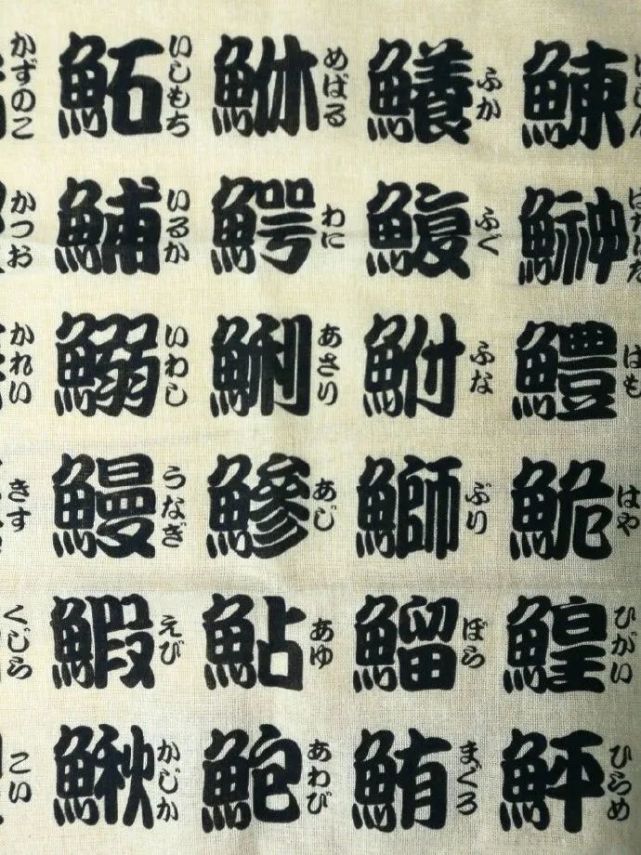 鯟
鰰
鱧 はも
鮠 はや
鰉 ひがい
鮃 ひらめ
鱶 ふか
鰒 ふぐ
鮒 ふな
鰤 ぶり
鰡 ぼら
鮪 まぐろ
鮴 めばる
鰐 わに
鯏 あさり
鰺 あじ
鮎 あゆ
鮑 あわび
鮖 いしもち
鯆 いるか
鰯 いわし
鰻 うなぎ
鰕 えび
鰍 かじか
かずのこ
かつお
かれい
きす
くじら
こい